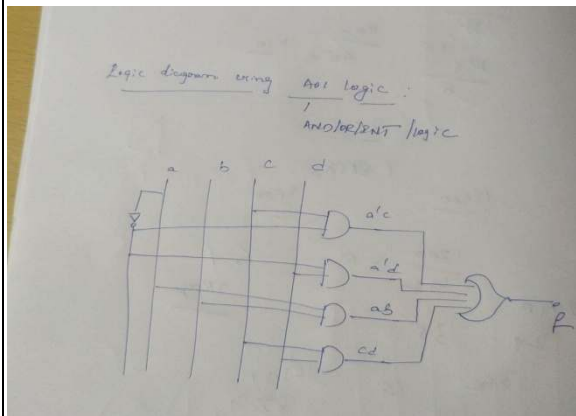 Logic diagram using AOI logic :
AND/OR/INT /logic
a b c d
a'c
a'd
ab
cd